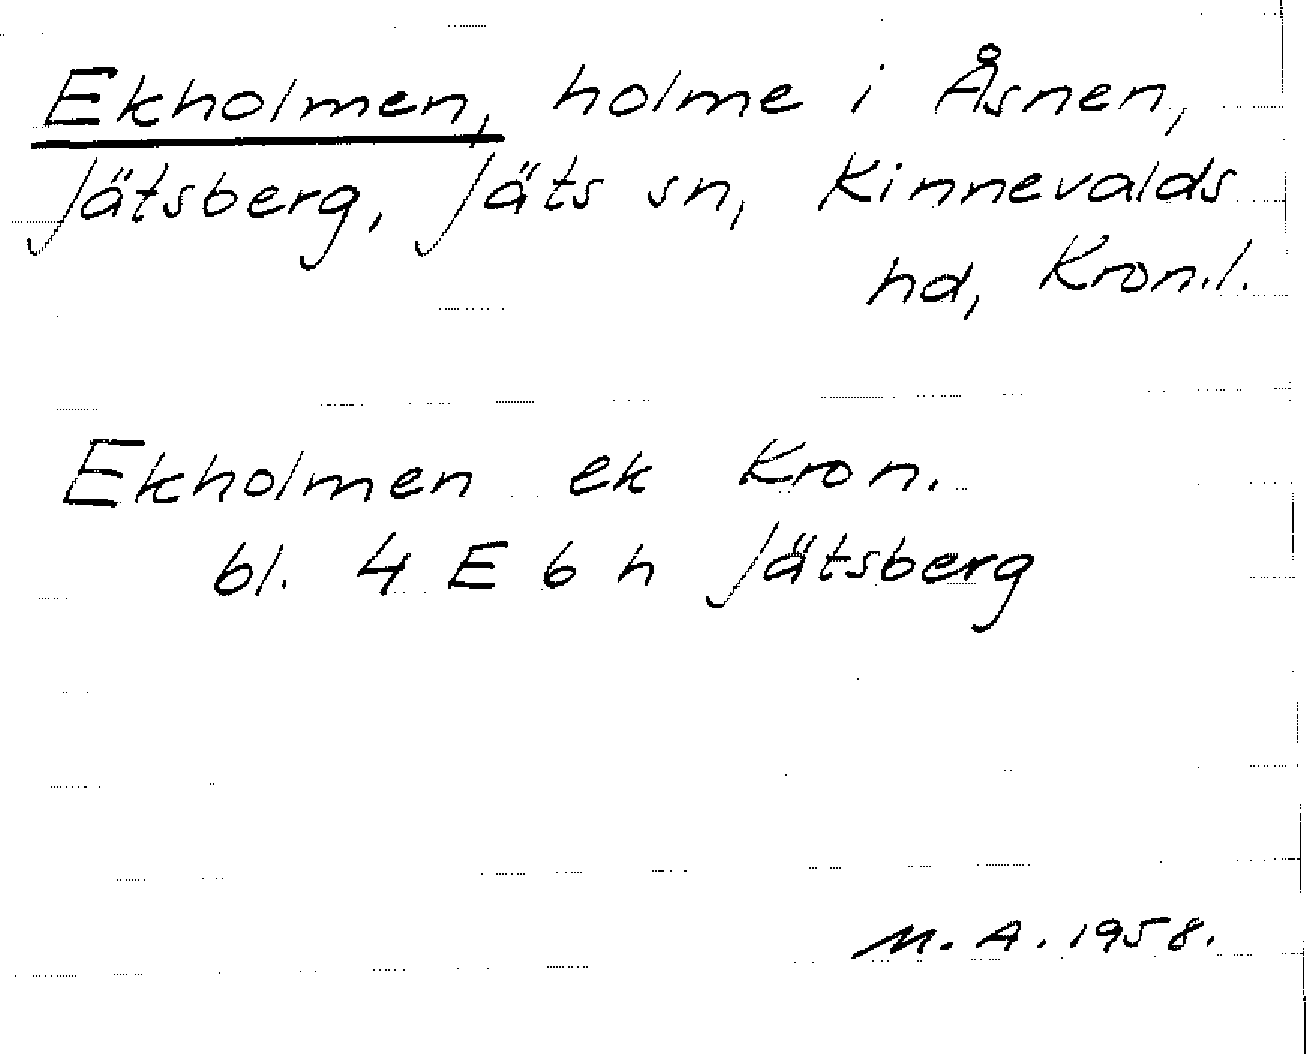 Ekholmen, holme i Åsnen,
Jätsberg, Jäts sn, Kinnevalds
hd, Kron.l.
Ekholmen ek Kron.
bl. 4 E 6 h Jätsberg
M. A. 1958.